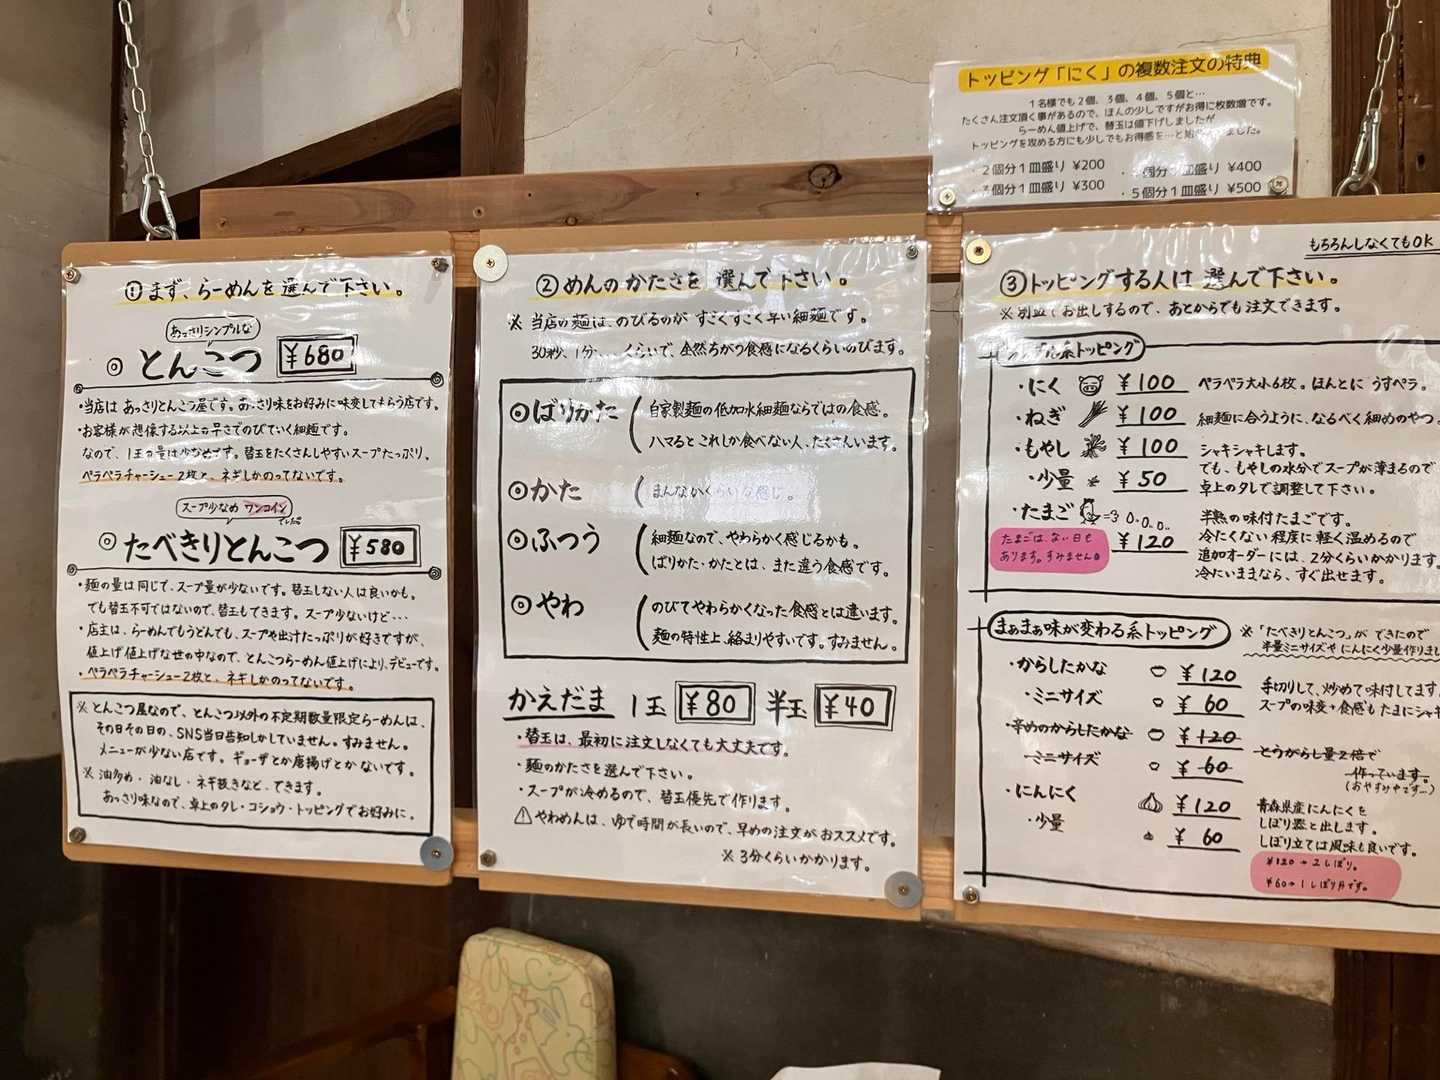 トッピング「にく」の複数注文の特典
1名様でも2個、3個、4個、5個と…
たくさん注文頂く事があるので、ほんの少しですがお得に枚数増です。
らーめん値上げで、替玉は値下げしましたが
トッピングを攻める方にも少しでもお得感を…と始めました。
・2個分1皿盛り ¥200
・3個分1皿盛り ¥300
個分1皿盛り ¥400
・5個分1皿盛り ¥500
①まず、らーめんを選んで下さい。
あっさりシンプルな
◎とんこつ ¥680
・当店は あっさりとんこつ屋です。あっさり味をお好みに味変してもらう店です。
・お客様が想像する以上の早さでのびていく細麺です。
なので、1玉の量は少なめです。替玉をたくさんしやすいスープたっぷり。
ペラペラチャーシュー2枚と、ネギしかのってないです。
スープ少なめ ワンコイン
でした
◎たべきりとんこつ ¥580
・麺の量は同じで、スープ量が少ないです。替玉しない人は良いかも。
でも替玉不可ではないので、替玉もできます。スープ少ないけど…
・店主は、らーめんでもうどんでも、スープや出汁たっぷりが好きですが、
値上げ値上げな世の中なので、とんこつらーめん値上げにより、デビューです。
・ペラペラチャーシュー2枚と、ネギしかのってないです。
※とんこつ屋なので、とんこつ以外の不定期数量限定らーめんは、
その日その日の、SNS当日告知しかしていません。すみません。
メニューが少ない店です。ギョーザとか唐揚げとかないです。
※油多め・油なし・ネギ抜きなど、できます。
あっさり味なので、卓上のタレ・コショウ・トッピングでお好みに。
②めんのかたさを選んで下さい。
※当店の麺は、のびるのが すごくすごく早い細麺です。
30秒、1分…くらいで、全然ちがう食感になるくらいのびます。
◎ばりかた
自家製麺の低加水細麺ならではの食感。
ハマるとこれしか食べない人、たくさんいます。
◎かた
まんなかくらいな感じ。
◎ふつう
細麺なので、やわらかく感じるかも。
ばりかた・かたとは、また違う食感です。
◎やわ
のびてやわらかくなった食感とは違います。
麺の特性上、絡まりやすいです。すみません。
かえだま 1玉 ¥80 半玉 ¥40
・替玉は、最初に注文しなくても大丈夫です。
・麺のかたさを選んで下さい。
・スープが冷めるので、替玉優先で作ります。
⚠やわめんは、ゆで時間が長いので、早めの注文がおススメです。
※3分くらいかかります。
もちろんしなくてもOK
③トッピングする人は 選んで下さい。
※別皿でお出しするので、あとからでも注文できます。
系トッピング
・にく ¥100 ペラペラ大小6枚。ほんとに うすペラ。
・ねぎ ¥100 細麺に合うように、なるべく細めのやつ。
・もやし ¥100 シャキシャキします。
でも、もやしの水分でスープが薄まるので
・少量 ¥50 卓上のタレで調整して下さい。
・たまご ¥120 半熟の味付たまごです。
冷たくない程度に軽く温めるので
追加オーダーには、2分くらいかかります。
冷たいままなら、すぐ出せます。
たまごは、ない日も
あります。すみません。
まぁまぁ味が変わる系トッピング
※「たべきりとんこつ」ができたので
半量ミニサイズや にんにく少量作りまし
・からしたかな ¥120 手切りして、炒めて味付してます
・ミニサイズ ¥60 スープの味変+食感もたまにシャキ
・辛めのからしたかな ¥120 とうがらし量2倍で
・ミニサイズ ¥60 作っています。
(おやすみ中です…)
・にんにく ¥120 青森県産にんにくを
しぼり器と出します。
・少量 ¥60 しぼり立ては風味も良いです。
¥120→2しぼり。
¥60→1しぼり分です。